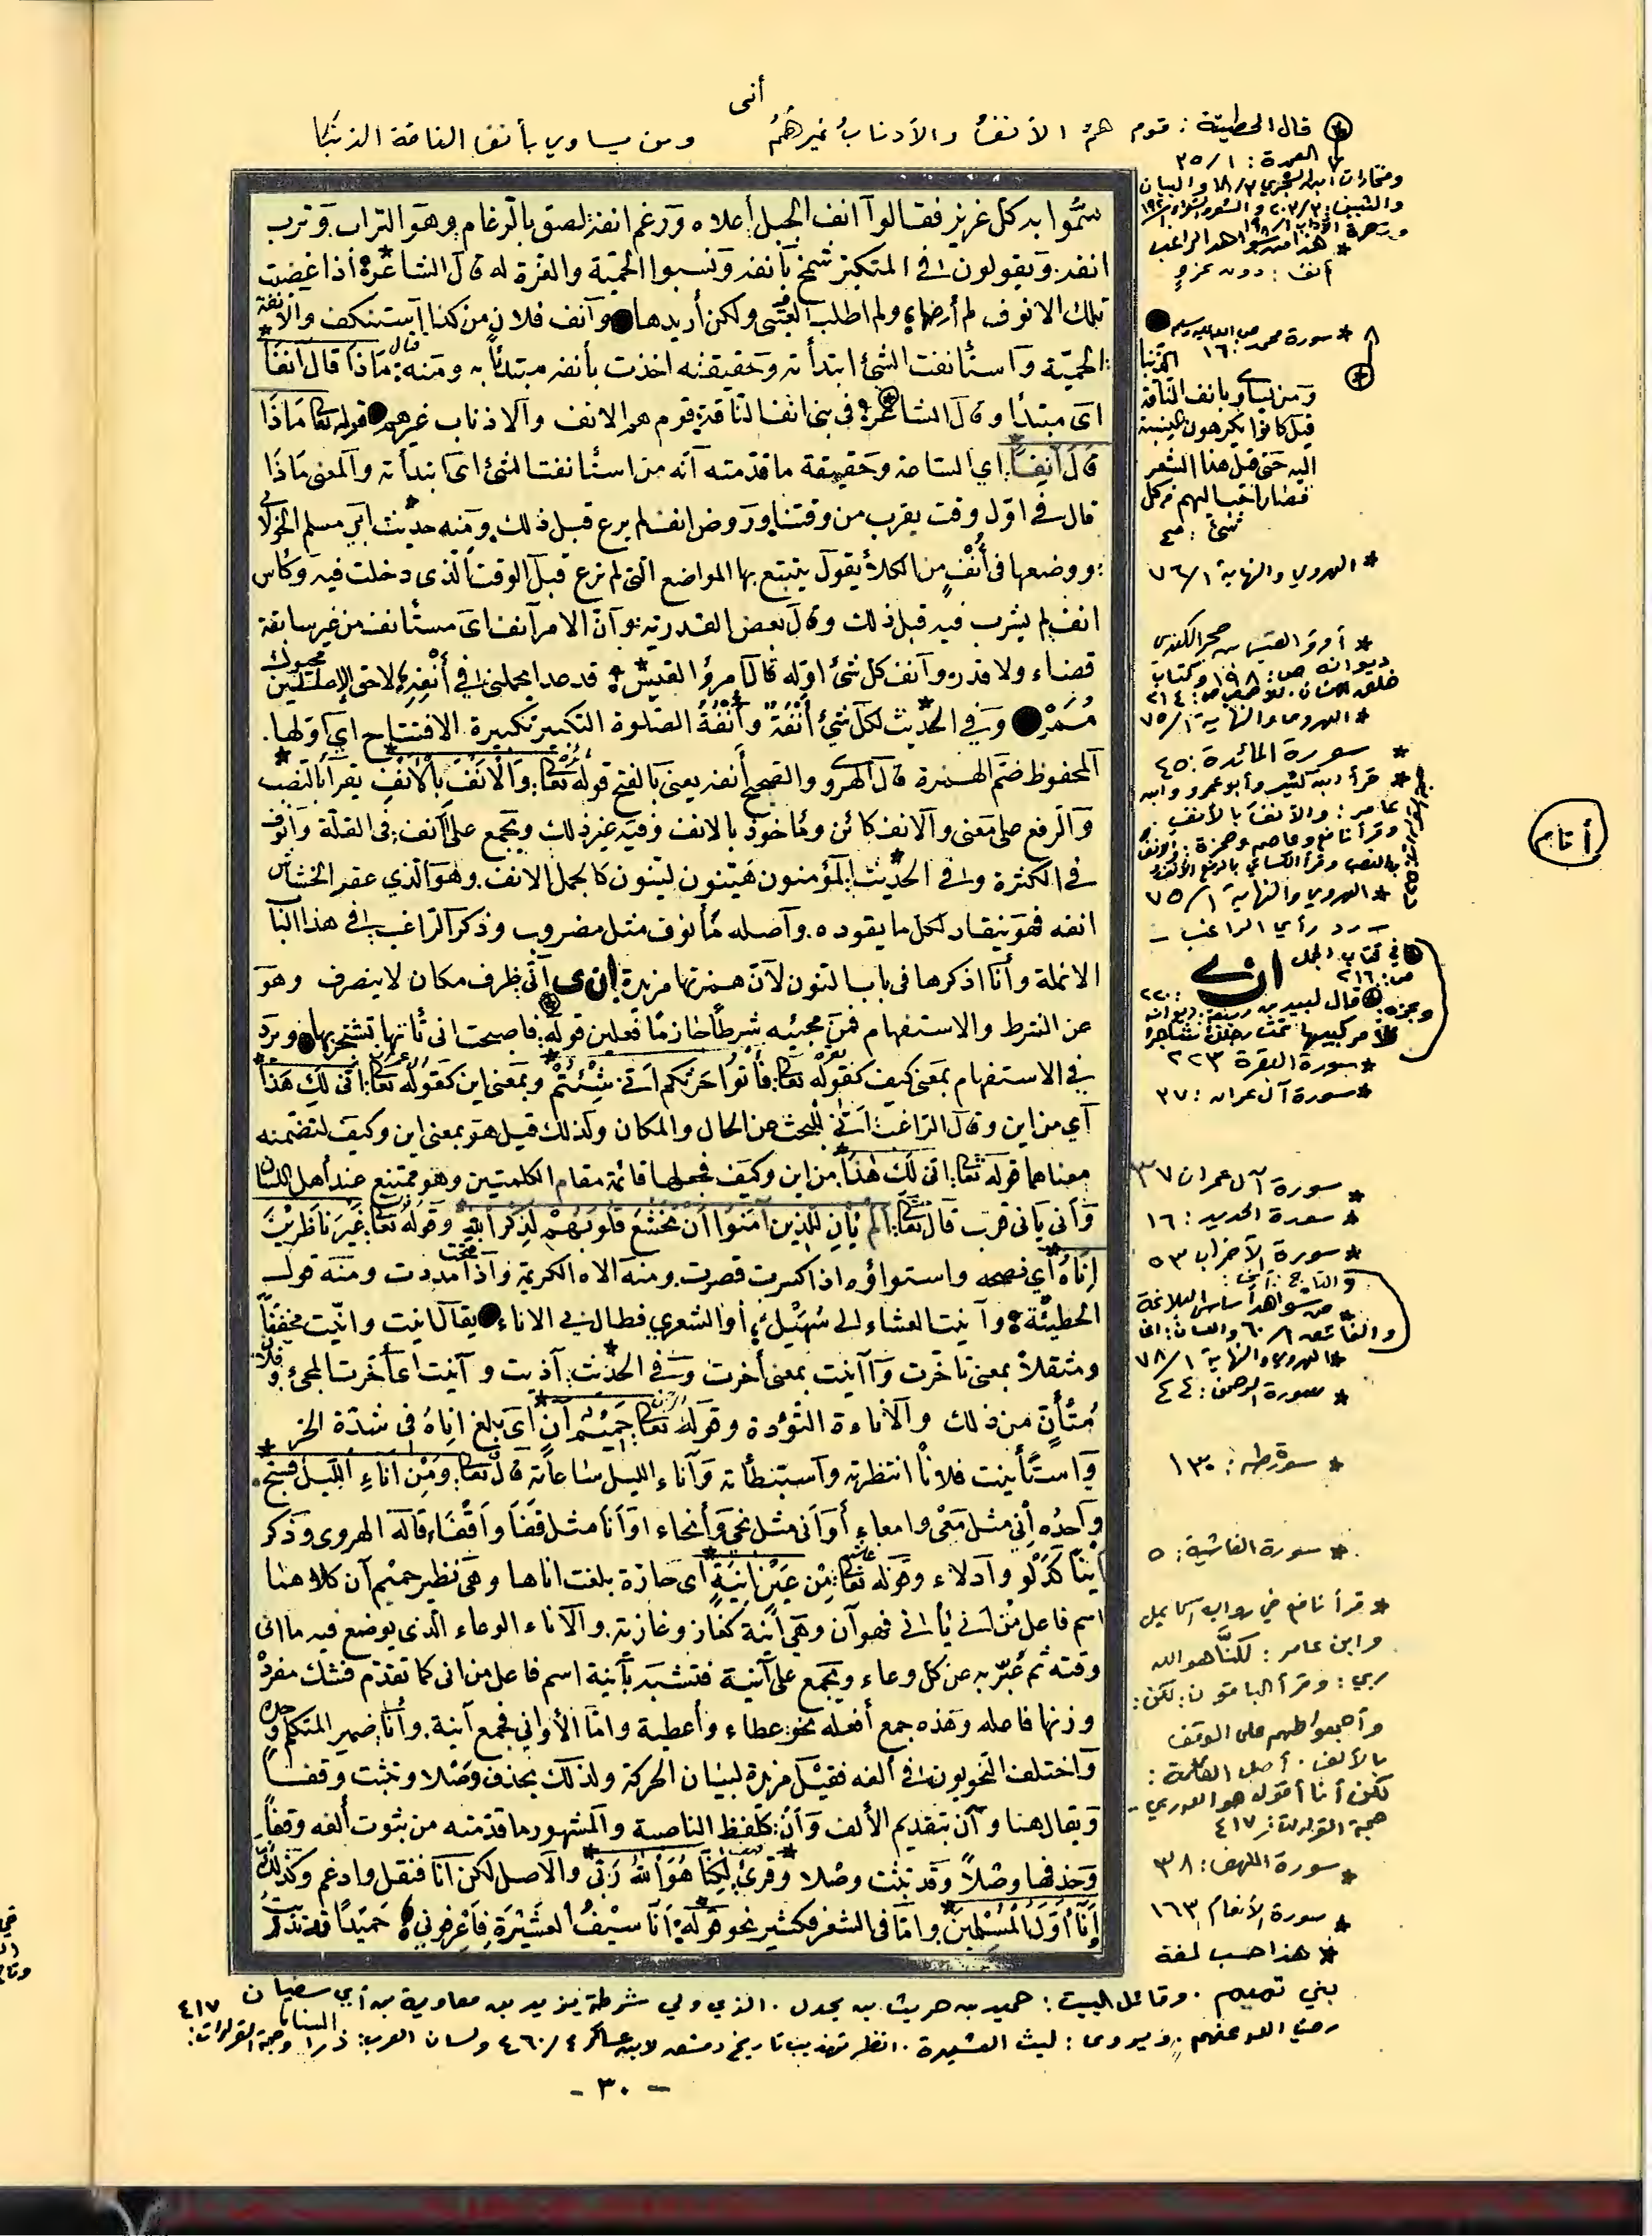 أنى
قال الحطيئة : قوم همُ الأنفُ والأذنابُ غيرهمُ ومن يساوي بأنف الناقة الذنبا
سمّوا به كل عزيز فقالوا أنف الجبل أعلاه ورغم أنفه لصق بالرغام وهو التراب وترب
أنفه ويقولون في المتكبر شمخ بأنفه ونسبوا الحمية والعزة له قال الشاعر إذا غضبت
تلك الأنوف لم أرضها ولم أطلب العتبى ولكن أزيدها وأنف فلان من كذا استنكف والأنفة
الحمية واستأنفت الشئ ابتدأته وحقيقته أخذت بأنفه مبتدئا به ومنه: ماذا قال آنفا
أي مبتدأ وقال الشاعر في بني أنف الناقة قوم هم الأنف والأذناب غيرهم قوله تعالى ماذا
قال آنفاً أي الساعة وحقيقة ما قدمته أنه من استأنفت الشئ أي ابتدأته والمعنى ماذا
قال في أول وقت يقرب من وقتنا وروض أنف لم يرع قبل ذلك ومنه حديث أبي مسلم الخولاني
ووضعها في أُنُفٍ من الكلأ يقول يتتبع بها المواضع التي لم ترع قبل الوقت الذي دخلت فيه وكأس
أنف لم يشرب فيه قبل ذلك وقال بعض القدرية وأن الأمر أنف أي مستأنف من غير سابقة
قضاء ولا قدر وأنف كل شئ أوله قال امرؤ القيس قد غدا يحملني في أنفه لاحق الإطلين محبوك
ممر وفي الحديث لكل شئ أُنْفَةٌ وأُنْفَةُ الصلوة التكبير تكبيرة الافتتاح أي أولها.
المحفوظ ضم الهمزة قال الهروي والصحيح أنفه يعني بالفتح قوله تعالى: والأنف بالأنف يقرأ بالنصب
والرفع على معنى والأنف كائن ومأخوذ بالأنف وفيه غير ذلك ويجمع على آنف في القلة وأنوف
في الكثرة وفي الحديث المؤمنون هينون لينون كالجمل الأنف وهو الذي عقر الخشاش
أنفه فهو ينقاد لكل ما يقوده وأصله مأنوف مثل مضروب وذكر الراغب في هذا الباب
الأنملة وأنا أذكرها في باب النون لأن همزتها مزيدة ان ى أنّى ظرف مكان لا ينصرف وهو
عن الشرط والاستفهام فمن مجيئه شرطا جازما فعلين قوله: فأصبحت أنى تأتها تشتجر بها وترد
في الاستفهام بمعنى كيف كقوله تعالى: فأتوا حرثكم أنى شئتم وبمعنى أين كقوله تعالى: أنى لك هذا
أي من أين وقال الراغب: أنى للبحث عن الحال والمكان ولذلك قيل هو بمعنى أين وكيف لتضمنه
معناهما قوله تعالى: أنى لك هذا من أين وكيف فجعلها قائمة مقام الكلمتين وهو ممتنع عند أهل اللسان
وأنى يأنى قرب قال تعالى: ألم يأن للذين آمنوا أن تخشع قلوبهم لذكر الله وقوله تعالى: غير ناظرين
إناه أي نضجه واستواؤه إذا كسرت قصرت ومنه الإناه الكريمة وإذا فتحت مددت ومنه قول
الحطيئة وآنيت العشاء إلى سُهَيْل أو الشعرى فطال بي الأناء يقال أنيت وأنّيت مخففاً
ومثقلاً بمعنى تأخرت وآنيت بمعنى أخرت وفي الحديث: آذيت وآنيت أي أخرت المجئ وفلان
مُتَأنٍ من ذلك والأناءة التؤدة وقوله تعالى حميم آن أي بلغ إناهُ في شدة الحر
واستأنيت فلاناً انتظرته واستبطأته وآناء الليل ساعاته قال تعالى: ومن آناء الليل فسبح
واحده إِنى مثل مِعى وأمعاء أو أَنى مثل نحى وأنحاء أو أنا مثل قفا وأقفاء قاله الهروي وذكر
أيضاً كدلو وأدلاء وقوله تعالى: من عين آنية أي حارة بلغت أناها وهي نظير حميم آن كلاهما
اسم فاعل من أنى يأنى فهو آن وهي آنية كغاز وغازية والإناء الوعاء الذي يوضع فيه ما أنى
وقته ثم عبر به عن كل وعاء ويجمع على آنية فتشبه بآنية اسم فاعل من أنى كما تقدم فتلك مفرد
وزنها فاعله وهذه جمع أفعله نحو عطاء وأعطية وأما الأواني فجمع آنية وأنا ضمير المتكلم وحده
واختلف النحويون في ألفه فقيل مزيدة لبيان الحركة ولذلك يحذف وصلا وتثبت وقفا
ويقال هنا وآن بتقديم الألف وأنْ كلفظ الناصبة والمشهور ما قدمته من ثبوت ألفه وقفاً
وحذفها وصلاً وقد تثبت وصلا وقرئ لكنا هو الله ربي والأصل لكن أنا فنقل وأدغم وكذلك
أنا أول المسلمين وأما في الشعر فكثير نحو قوله: أنا سيف العشيرة فاعرفوني حميدا قد تذريت
العمدة : ١/ ٢٥
* هذا من شواهد الراغب
أنف : دون عزوٍ
* سورة محمد صلى الله عليه وسلم ١٦
ومن يساوي بأنف الناقة
الذنبا
قبل كانوا يكرهون النسبة
إليه حتى قيل هذا الشعر
فصار أحب إليهم من كل
شئ : صح
* الهروي والنهاية ١/ ٧٦
* امرؤ القيس بن حجر الكندي
ديوانه ص: ١٩٨ وكتاب
خلق الإنسان ص: ٢١٤
* الهروي والنهاية ١/ ٧٥
* سورة المائدة : ٤٥
* قرأ ابن كثير وأبو عمرو وابن
عامر : والأنفَ بالأنف
وقرأ نافع وعاصم وحمزة : والأنفَ
بالنصب وقرأ الكسائي بالرفع
* الهروي والنهاية ١/ ٧٥
- رد رأي الراغب -
في كتاب الجمل
ص: ٢١٦
أنى
قال لبيد بن ربيعة
* سورة البقرة ٢٢٣
* سورة آل عمران : ٣٧
* سورة آل عمران ٣٧
* سورة الحديد : ١٦
* سورة الأحزاب ٥٣
والتاج : أنى :
* من شواهد أساس البلاغة
والفائق ١/ ٦٠ واللسان : أنى
* الهروي والنهاية ١/ ٧٨
* سورة الرحمن : ٤٤
* سورة طه : ١٣٠
* سورة الغاشية : ٥
* قرأ نافع في رواية إسماعيل
وابن عامر : لكنَّا هو الله
ربي : وقرأ الباقون : لكن :
وأجمعوا كلهم على الوقف
بالألف . أصل الكلمة :
لكن أنا أقول هو الله ربي -
حجة القراءات : ٤١٧
* سورة الكهف : ٣٨
* سورة الأنعام ١٦٣
* هذا حسب لغة
بني تميم . وقائل البيت : حميد بن حريث بن بحدل . الذي ولي شرطة يزيد بن معاوية بن أبي سفيان
رضي الله عنهم . ويروى : ليث العشيرة . انظر تهذيب تاريخ دمشق لابن عساكر ٤/ ٤٦٠ ولسان العرب : ذرا وحجة القراءات : ٤١٧
أتاهم
- ٣٠ -